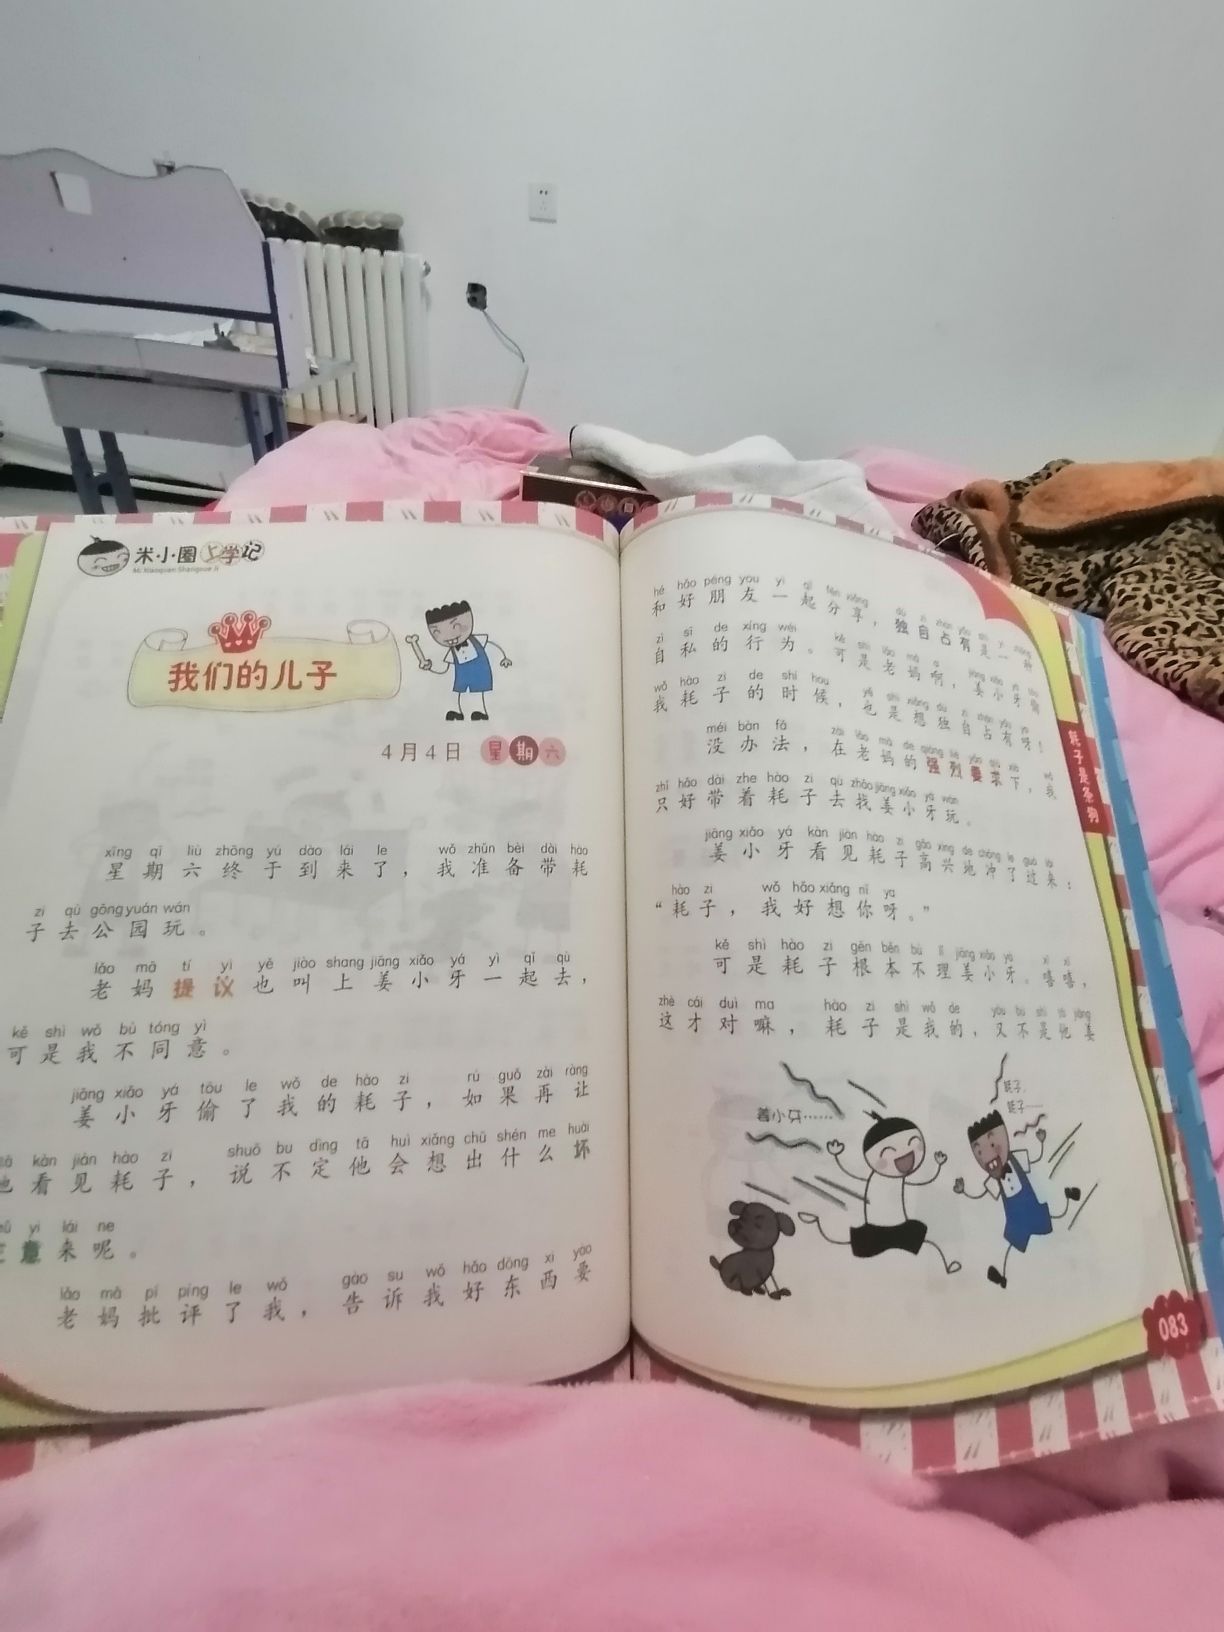 米小圈上学记
Mi Xiaoquan Shangxue Ji
我们的儿子
4月4日 星期六
xīng qī liù zhōng yú dào lái le wǒ zhǔn bèi dài hào
星期六终于到来了，我准备带耗
zi qù gōng yuán wán
子去公园玩。
lǎo mā tí yì yě jiào shang jiāng xiǎo yá yì qǐ qù
老妈提议也叫上姜小牙一起去，
kě shì wǒ bù tóng yì
可是我不同意。
jiāng xiǎo yá tōu le wǒ de hào zi rú guǒ zài ràng
姜小牙偷了我的耗子，如果再让
kàn jiàn hào zi shuō bu dìng tā huì xiǎng chū shén me huài
他看见耗子，说不定他会想出什么坏
yi lái ne
意来呢。
lǎo mā pī píng le wǒ gào su wǒ hǎo dōng xi yào
老妈批评了我，告诉我好东西要
hé hǎo péng you yì qǐ fēn xiǎng dú zì zhàn yǒu shì yì zhǒng
和好朋友一起分享，独自占有是一种
zì sī de xíng wéi kě shì lǎo mā a jiāng xiǎo yá tōu
自私的行为。可是老妈啊，姜小牙偷
wǒ hào zi de shí hou yě shì xiǎng dú zì zhàn yǒu ya
我耗子的时候，也是想独自占有呀！
méi bàn fǎ zài lǎo mā de qiáng liè yāo qiú xià wǒ
没办法，在老妈的强烈要求下，我
zhǐ hǎo dài zhe hào zi qù zhǎo jiāng xiǎo yá wán
只好带着耗子去找姜小牙玩。
jiāng xiǎo yá kàn jiàn hào zi gāo xìng de chōng le guò lái
姜小牙看见耗子高兴地冲了过来：
hào zi wǒ hǎo xiǎng nǐ ya
“耗子，我好想你呀。”
kě shì hào zi gēn běn bù lǐ jiāng xiǎo yá xī xī
可是耗子根本不理姜小牙。嘻嘻，
zhè cái duì ma hào zi shì wǒ de yòu bú shì tā jiāng
这才对嘛，耗子是我的，又不是他姜
姜小牙……
耗子，
耗子……
耗子是条狗
083